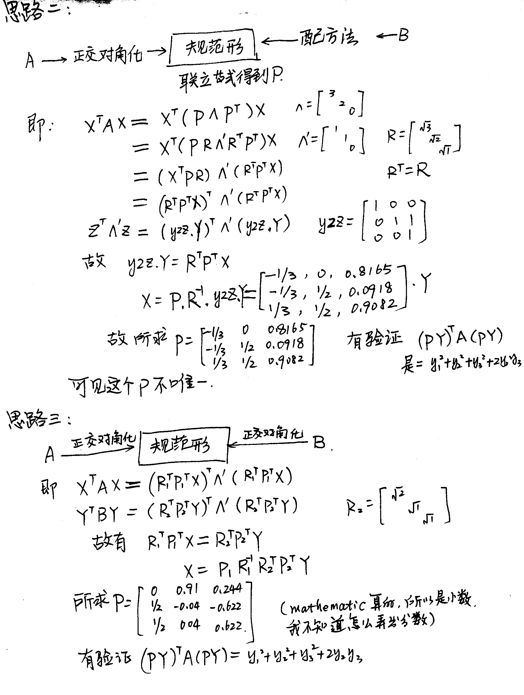 思路二:
A → 正交对角化 → 规范形 ← 配方法 ← B
联立等式得到P.
即: XᵀAX = Xᵀ(PΛPᵀ)X Λ=[3 2 0]
= Xᵀ(PRΛ'RᵀPᵀ)X Λ'=[1 1 0] R=[√3 √2 √1]
= (XᵀPR)Λ'(RᵀPᵀX) Rᵀ=R
= (RᵀPᵀX)ᵀΛ'(RᵀPᵀX)
ZᵀΛ'Z = (y2z.Y)ᵀΛ'(y2z.Y) y2z=[1 0 0; 0 1 1; 0 0 1]
故 y2z.Y = RᵀPᵀX
X = P.R⁻¹.y2z.Y=[-1/3, 0, 0.8165; -1/3, 1/2, 0.0918; 1/3, 1/2, 0.9082].Y
故所求 P=[-1/3 0 0.8165; -1/3 1/2 0.0918; 1/3 1/2 0.9082] 有验证 (PY)ᵀA(PY)
是=y₁²+y₂²+y₃²+2y₂y₃
可见这个P不唯一.
思路三:
A 正交对角化 → 规范形 ← 正交对角化 B.
即 XᵀAX = (R₁ᵀP₁ᵀX)ᵀΛ'(R₁ᵀP₁ᵀX)
YᵀBY = (R₂ᵀP₂ᵀY)ᵀΛ'(R₂ᵀP₂ᵀY) R₂=[√2 √1 √1]
故有 R₁ᵀP₁ᵀX = R₂ᵀP₂ᵀY
X = P₁R₁⁻¹R₂ᵀP₂ᵀY
所求P=[0 0.91 0.244; 1/2 -0.04 -0.622; 1/2 0.04 0.622.] (mathematic 算的, 所以是小数.
我不知道怎么弄出分数)
有验证 (PY)ᵀA(PY) = y₁²+y₂²+y₃²+2y₂y₃